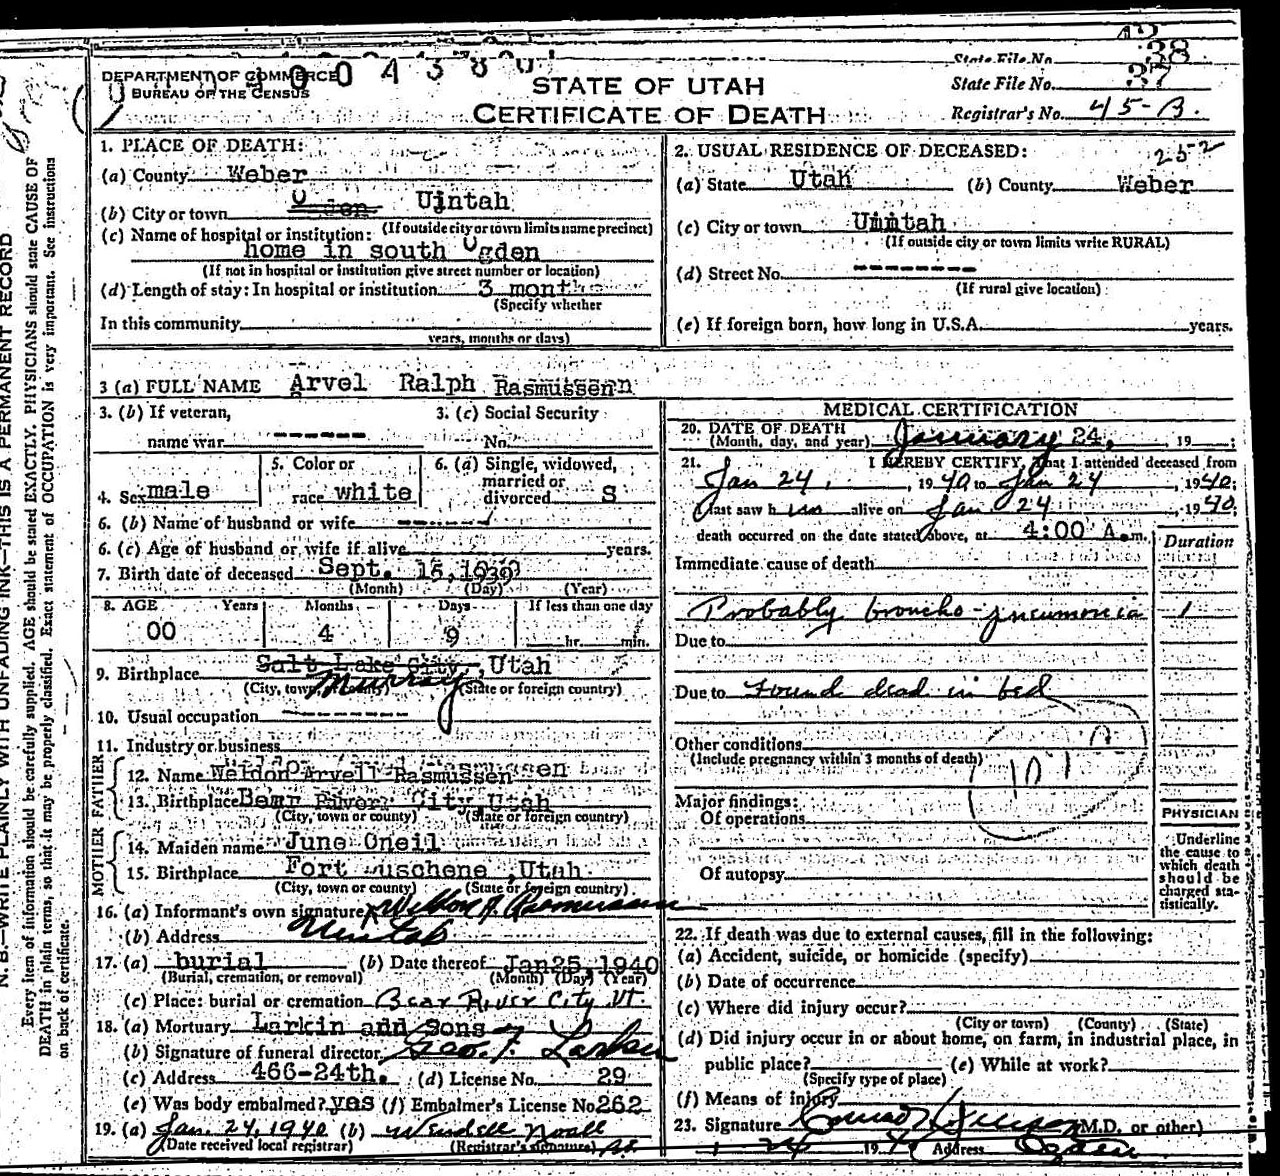 DEPARTMENT OF COMMERCE
BUREAU OF THE CENSUS
STATE OF UTAH
CERTIFICATE OF DEATH
State File No. 38
State File No. 37
Registrar's No. 45-B.
1. PLACE OF DEATH:
(a) County Weber
(b) City or town Ogden Uintah
(If outside city or town limits name precinct)
(c) Name of hospital or institution:
home in south Ogden
(If not in hospital or institution give street number or location)
(d) Length of stay: In hospital or institution 3 months
(Specify whether
In this community
years, months or days)
2. USUAL RESIDENCE OF DECEASED: 252
(a) State Utah (b) County Weber
(c) City or town Uintah
(If outside city or town limits write RURAL)
(d) Street No. --------
(If rural give location)
(e) If foreign born, how long in U.S.A. years.
3 (a) FULL NAME Arvel Ralph Rasmussen
3. (b) If veteran,
name war -------
3. (c) Social Security
No.
4. Sex male
5. Color or
race white
6. (a) Single, widowed,
married or
divorced S
6. (b) Name of husband or wife -------
6. (c) Age of husband or wife if alive years.
7. Birth date of deceased Sept. 15, 1939
(Month) (Day) (Year)
8. AGE Years Months Days If less than one day
00 4 9 hr. min.
9. Birthplace Salt Lake City, Utah
Murray
(City, town, or county) (State or foreign country)
10. Usual occupation ---------
11. Industry or business
FATHER
12. Name Weldon Arvell Rasmussen
13. Birthplace Bear River City, Utah
(City, town or county) (State or foreign country)
MOTHER
14. Maiden name June Oneil
15. Birthplace Fort Duschene, Utah
(City, town or county) (State or foreign country)
16. (a) Informant's own signature Weldon A. Rasmussen
(b) Address Uintah
17. (a) burial (b) Date thereof Jan 25, 1940
(Burial, cremation, or removal) (Month) (Day) (Year)
(c) Place: burial or cremation Bear River City Ut
18. (a) Mortuary Larkin and Sons
(b) Signature of funeral director Geo. F. Larkin
(c) Address 466-24th. (d) License No. 29
(e) Was body embalmed? yes (f) Embalmer's License No 262
19. (a) Jan. 24, 1940 (b) Wendell Noall
(Date received local registrar) (Registrar's signature)
MEDICAL CERTIFICATION
20. DATE OF DEATH
(Month, day, and year) January 24, 19 ;
21. I HEREBY CERTIFY, that I attended deceased from
Jan 24, 1940 to Jan 24, 1940;
I last saw him alive on Jan 24, 1940;
death occurred on the date stated above, at 4:00 A.m.
Duration
Immediate cause of death
Probably broncho-pneumonia 1
Due to
Due to Found dead in bed
Other conditions
(Include pregnancy within 3 months of death)
107
Major findings:
Of operations
Of autopsy
PHYSICIAN
Underline
the cause to
which death
should be
charged sta-
tistically.
22. If death was due to external causes, fill in the following:
(a) Accident, suicide, or homicide (specify)
(b) Date of occurrence
(c) Where did injury occur?
(City or town) (County) (State)
(d) Did injury occur in or about home, on farm, in industrial place, in
public place? (e) While at work?
(Specify type of place)
(f) Means of injury
23. Signature Conrad (M.D. or other)
1 24 1940 Address Ogden
N. B.—WRITE PLAINLY WITH UNFADING INK—THIS IS A PERMANENT RECORD
Every item of information should be carefully supplied. AGE should be stated EXACTLY. PHYSICIANS should state CAUSE OF
DEATH in plain terms, so that it may be properly classified. Exact statement of OCCUPATION is very important. See instructions
on back of certificate.